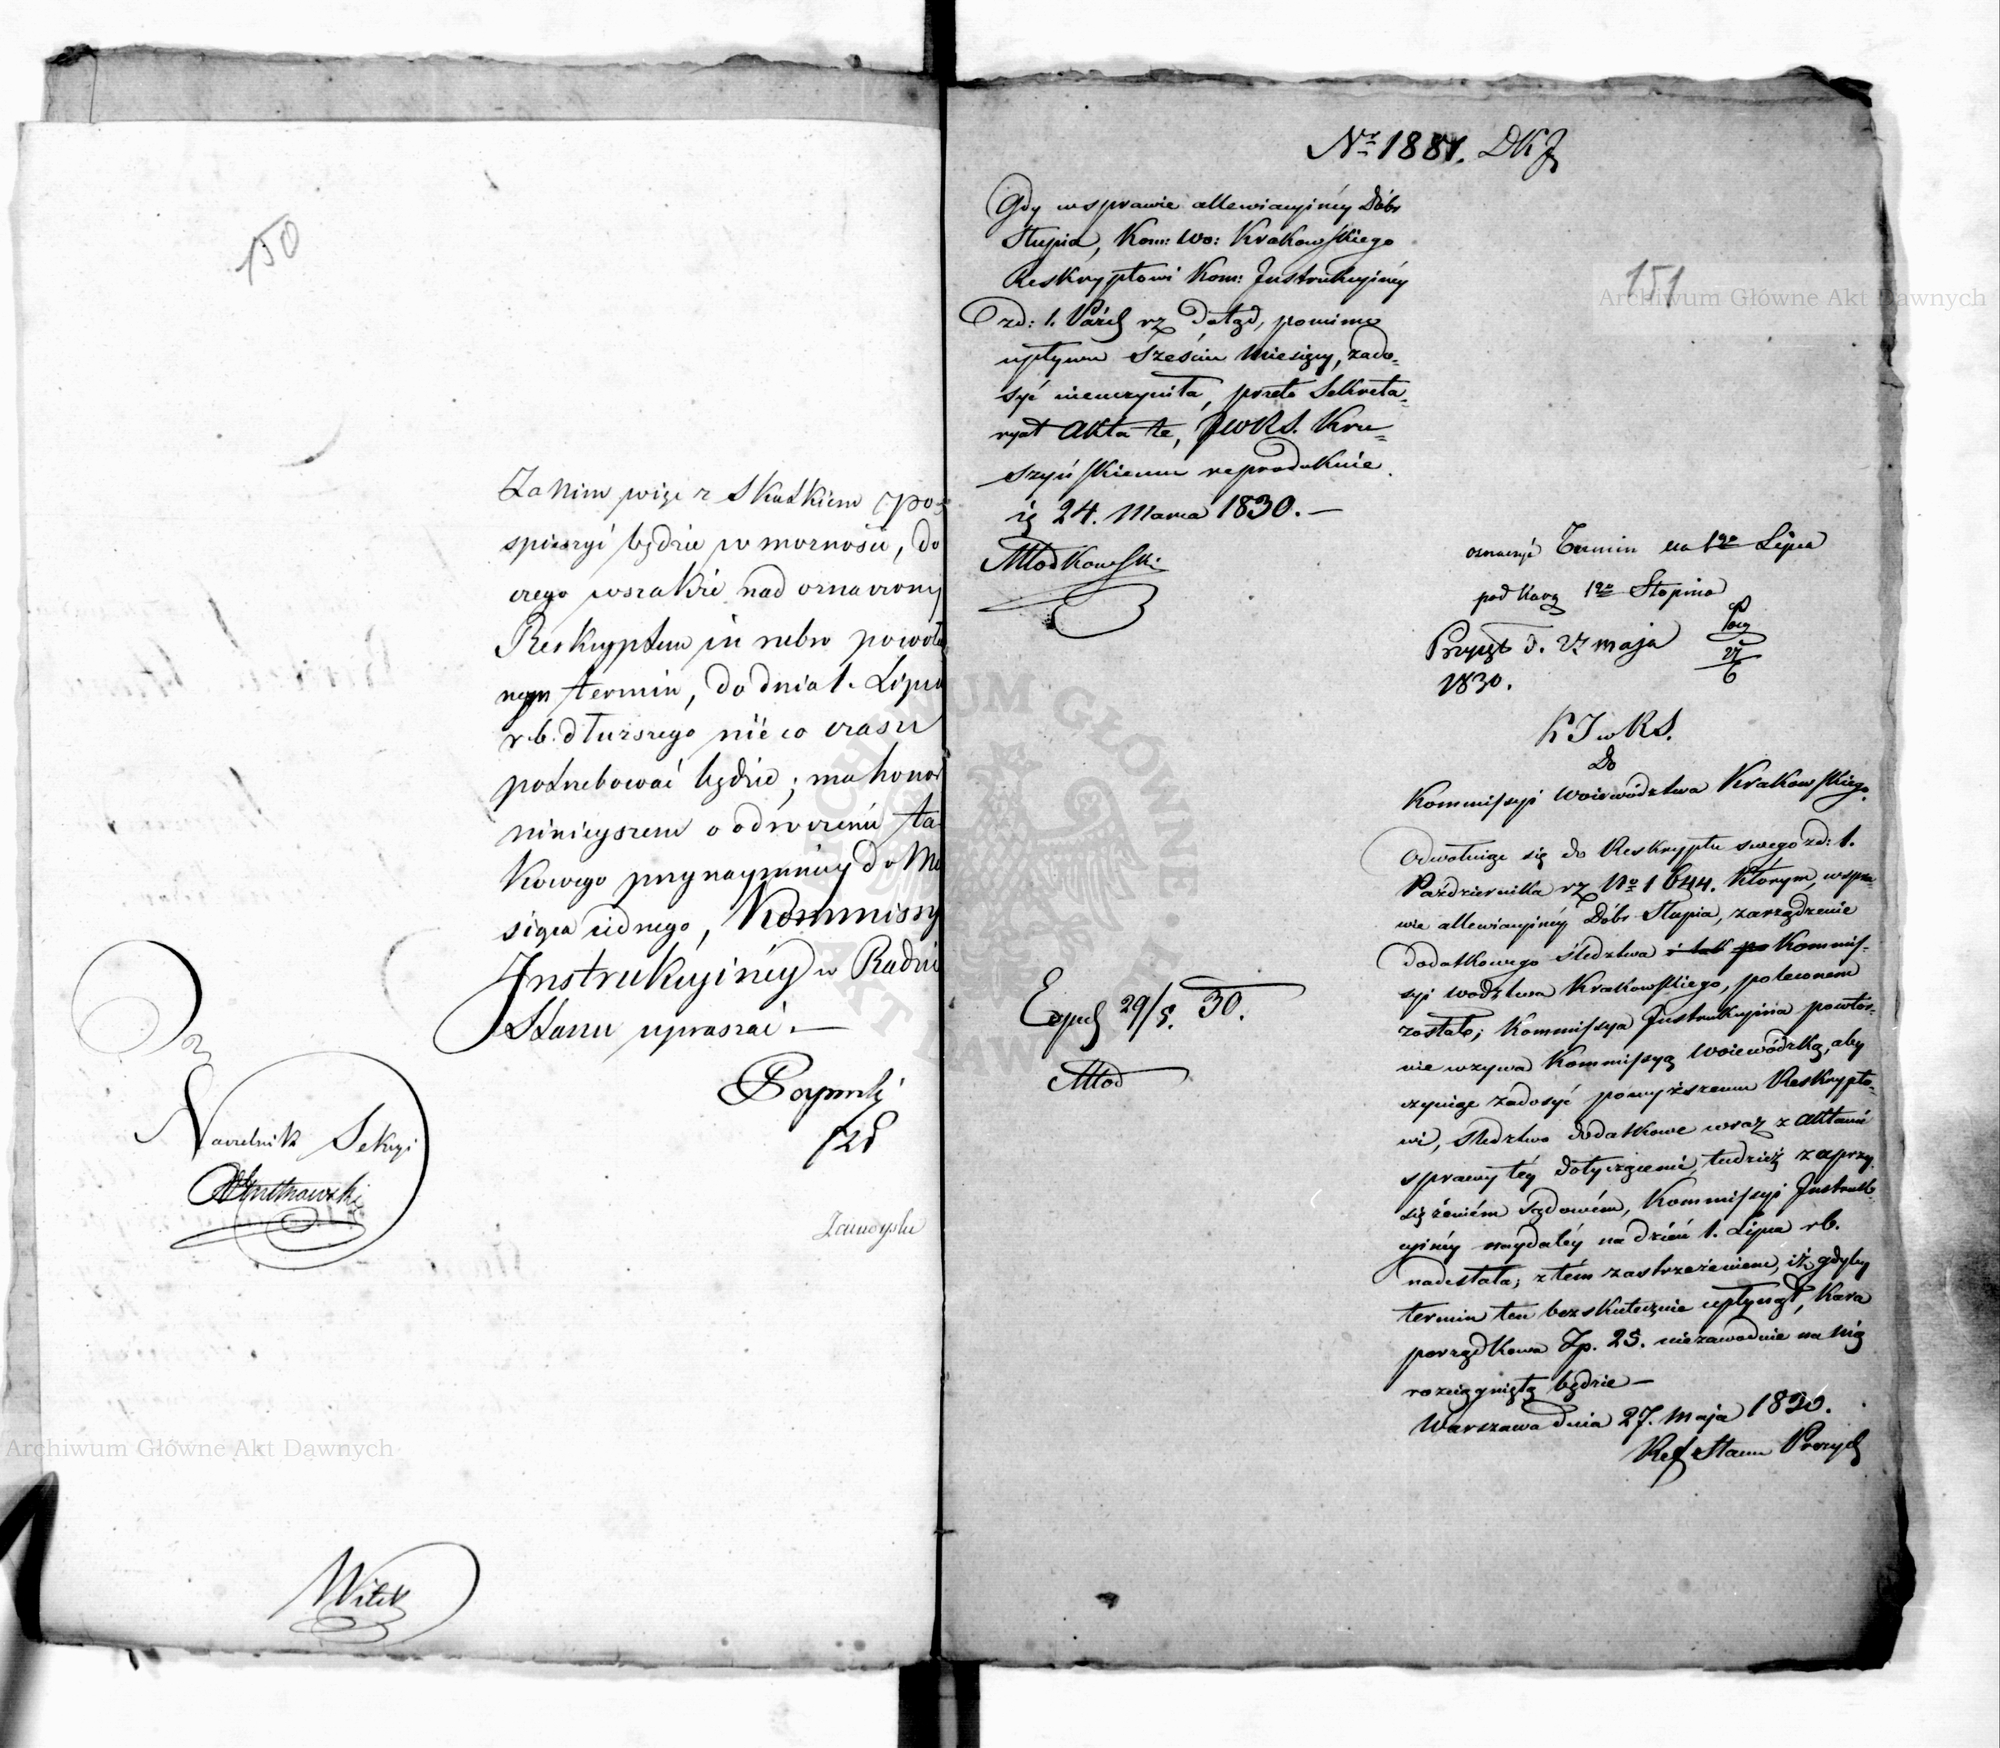 150
Zanim więc z skutkiem pos-
pieszyć będzie w możności, do
czego wszakże nad oznaczony
Reskryptem in rubro powoła-
nym termin, do dnia 1. Lipca
r.b. dłuższego nieco czasu
potrzebować będzie; ma honor
ninieyszem o odroczenie ta-
kowego przynaymniey do Mie-
siąca iednego, Kommissyi
Instrukcyinéy w Radzie
Stanu upraszać. —
Naczelnik Sekcyi
Witek
Nr. 1881. DKJ
151
Gdy w sprawie allewiacyinéy Dóbr
Słupia, Kom: Wo: Krakowskiego
Reskryptowi Kom: Instrukcyinéy
zd: 1. Paźdz rz dotąd, pomimo
upływu sześciu Miesięcy, zado-
syć nieuczyniła, przeto Sekreta-
ryat Akta te, JWRS. Kru-
szyńskiemu reprodukuie.
24. Marca 1830. —
Młodkowski
oznaczyć Termin na 1go Lipca
pod karą 1go Stopnia
Przyięto d. 27 maja
1830.
K J w R S.
Do
Kommissyi Woiewództwa Krakowskiego.
Odwołuiąc się do Reskryptu swego zd: 1.
Października rz No 1644. którym, w spra-
wie allewiacyinéy Dóbr Słupia, zarządzenie
dodatkowego śledztwa i tak po Kommis-
syi Wodztwa Krakowskiego, poleconem
zostało; Kommissya Instrukcyina powtór-
nie wzywa Kommissyą Woiewódzką, aby
czyniąc zadosyć powyższemu Reskrypto-
wi, śledztwo dodatkowe wraz z aktami
sprawy téy dotyczącemi, tudzież zaprzy-
siężeniem sądowém, Kommissyi Instruk-
cyinéy naydaléy na dzień 1. Lipca rb.
nadesłała; z tém zastrzeżeniem, iż gdyby
termin ten bezskutecznie upłynął, kara
porządkowa Zp. 25. niezawodnie na nią
rozciągniętą będzie —
Warszawa dnia 27. Maja 1830.
Ref Stanu
Exped 29/5. 30.
Młod
Archiwum Główne Akt Dawnych
Archiwum Główne Akt Dawnych
ARCHIWUM GŁÓWNE AKT DAWNYCH